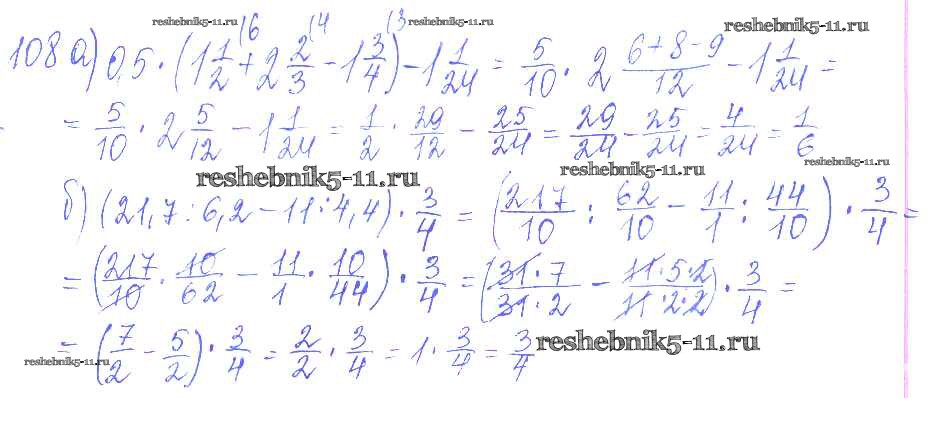 reshebnik5-11.ru reshebnik5-11.ru reshebnik5-11.ru
108 а) 0,5 · (1 1/2 (6 + 2 2/3 (4 - 1 3/4 (3) - 1 1/24 = 5/10 · 2 (6+8-9)/12 - 1 1/24 =
= 5/10 · 2 5/12 - 1 1/24 = 1/2 · 29/12 - 25/24 = 29/24 - 25/24 = 4/24 = 1/6
reshebnik5-11.ru reshebnik5-11.ru reshebnik5-11.ru
б) (21,7 : 6,2 - 11 : 4,4) · 3/4 = (217/10 : 62/10 - 11/1 : 44/10) · 3/4 =
= (217/10 · 10/62 - 11/1 · 10/44) · 3/4 = (31·7/31·2 - 11·5·2/11·2·2) · 3/4 =
= (7/2 - 5/2) · 3/4 = 2/2 · 3/4 = 1 · 3/4 = 3/4
reshebnik5-11.ru reshebnik5-11.ru